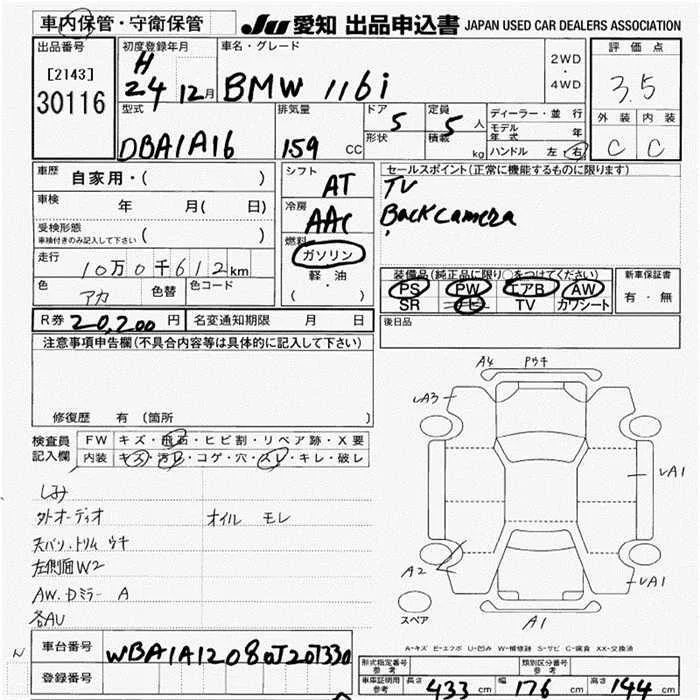 車内保管・守衛保管
JU 愛知 出品申込書 JAPAN USED CAR DEALERS ASSOCIATION
出品番号
[2143]
30116
初度登録年月
H
24 12月
車名・グレード
BMW 116i
2WD
・
4WD
評価点
3.5
外装 内装
C C
型式
DBA1A16
排気量
159 CC
ドア 5
形状
定員 5 人
積載 kg
ディーラー・並行
モデル年式 年
ハンドル 左・右
車歴
自家用・( )
車検 年 月( 日)
受検形態
車検付きのみ記入して下さい ( )
走行
10万0千612km
色 アカ 色替 色コード
シフト
AT
冷房
AAC
燃料
ガソリン
軽・油
( )
セールスポイント(正常に機能するものに限ります)
TV
Back camera
装備品(純正品に限り○をつけてください)
PS PW エアB AW
SR ナビ TV カワシート
新車保証書
有・無
R券 20,200 円 名変通知期限 月 日
後日品
注意事項申告欄(不具合内容等は具体的に記入して下さい)
修復歴 有 (箇所 )
検査員記入欄
FW キズ・飛石・ヒビ割・リペア跡・X要
内装 キズ・汚レ・コゲ・穴・スレ・キレ・破レ
シミ
外オーディオ オイル モレ
天バリ・トリム ウキ
左側面W2
AW.Dミラー A
各AU
A4 Pウキ
A3
A1
A2
A1
A1
スペア
A-キズ E-エクボ U-凹み W-補修跡 S-サビ C-腐食 XX-交換済
N
車台番号 WBA1A12080J207330
登録番号
形式指定番号 参考
類別区分番号 参考
車庫証明用 参考 長さ 433 cm 幅 176 cm 高さ 144 cm